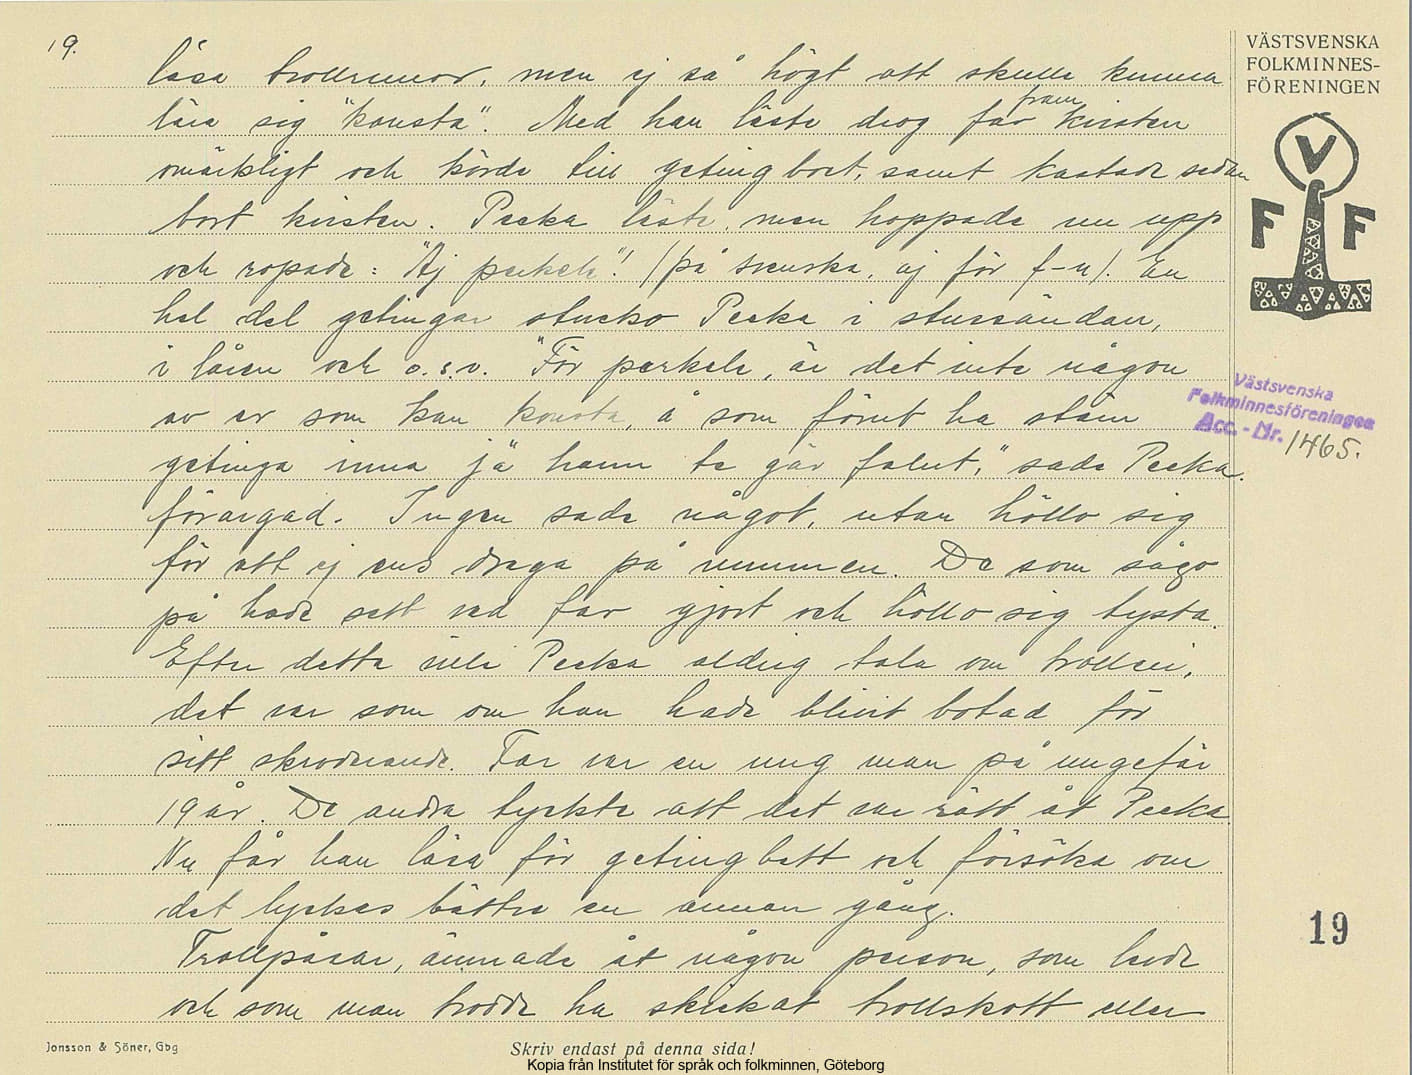 19.
läsa trollrunor, men ej så högt att skulle kunna
lära sig "konsta". Med han läste drog far fram kvisten
omärkligt och körde till getingbort, samt kastade sedan
bort kvisten. Pecka läste, men hoppade nu upp
och ropade: "Aj perkele"! (på svenska, aj för f-n). En
hel del getingar stucko Pecka i stussändan,
i låren och o.s.v. "För perkele, är det inte någon
av er som kan konsta, å som förut ha stäm
getinga inna jä hann te gär falut," sade Pecka
förargad. Ingen sade något, utan höllo sig
för att ej ens draga på munnen. De som sågo
på hade sett vad far gjort och höllo sig tysta.
Efter detta ville Pecka aldrig tala om trolleri,
det var som om han hade blivit botad för
sitt skroderande. Far var en ung man på ungefär
19 år. De andra tyckte att det var rätt åt Pecka
Nu får han läsa för getingbett och försöka om
det lyckas bättre en annan gång.
Trollpåsar, ämnade åt någon person, som levde
och som man trodde ha skickat trollskott eller
VÄSTSVENSKA
FOLKMINNES-
FÖRENINGEN
V
F F
Västsvenska
Folkminnesföreningen
Acc.-Nr. 1465.
19
Jonsson & Söner, Gbg
Skriv endast på denna sida!
Kopia från Institutet för språk och folkminnen, Göteborg